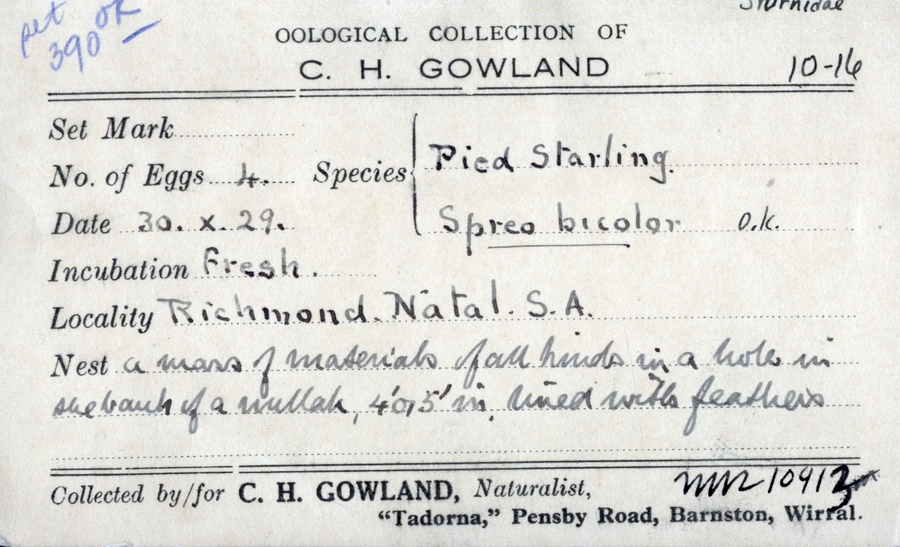 Sturnidae
set OK
390
OOLOGICAL COLLECTION OF
C. H. GOWLAND
10-16
Set Mark
No. of Eggs 4. Species Pied Starling.
Date 30. x. 29. Spreo bicolor o.k.
Incubation Fresh.
Locality Richmond. Natal. S.A.
Nest a mass of materials of all kinds in a hole in
the bank of a nullah, 4' or 5' in, lined with feathers
Collected by/for C. H. GOWLAND, Naturalist,
10912
"Tadorna," Pensby Road, Barnston, Wirral.